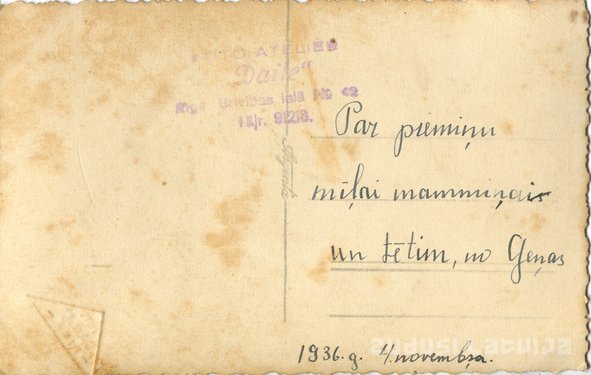 ATELIER
"Daile"
Brīvības ielā №
Par piemiņu
mīļai mammiņai
un tētim, no Geņas
1936. g. 4. novembra.